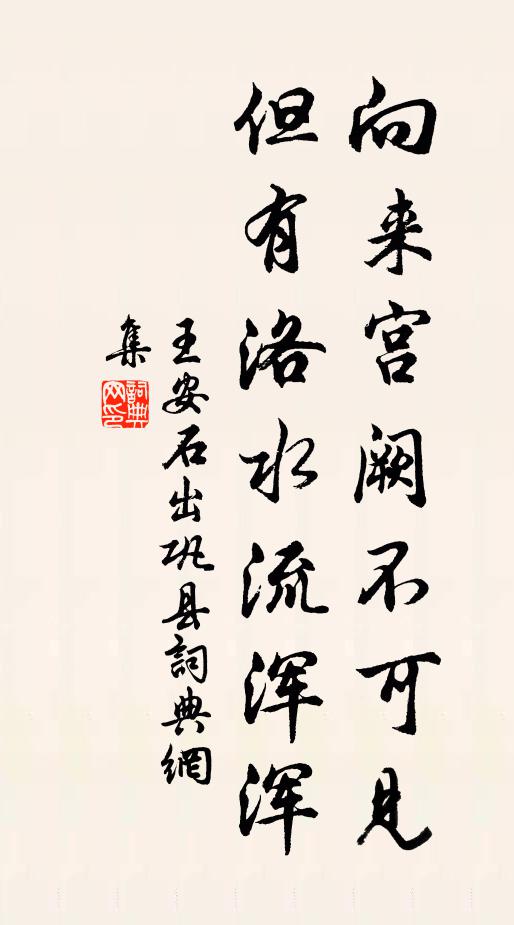 向来宫阙不可见
但有洛水流浑浑
王安石出巩县詞典網
集
詞典
网印